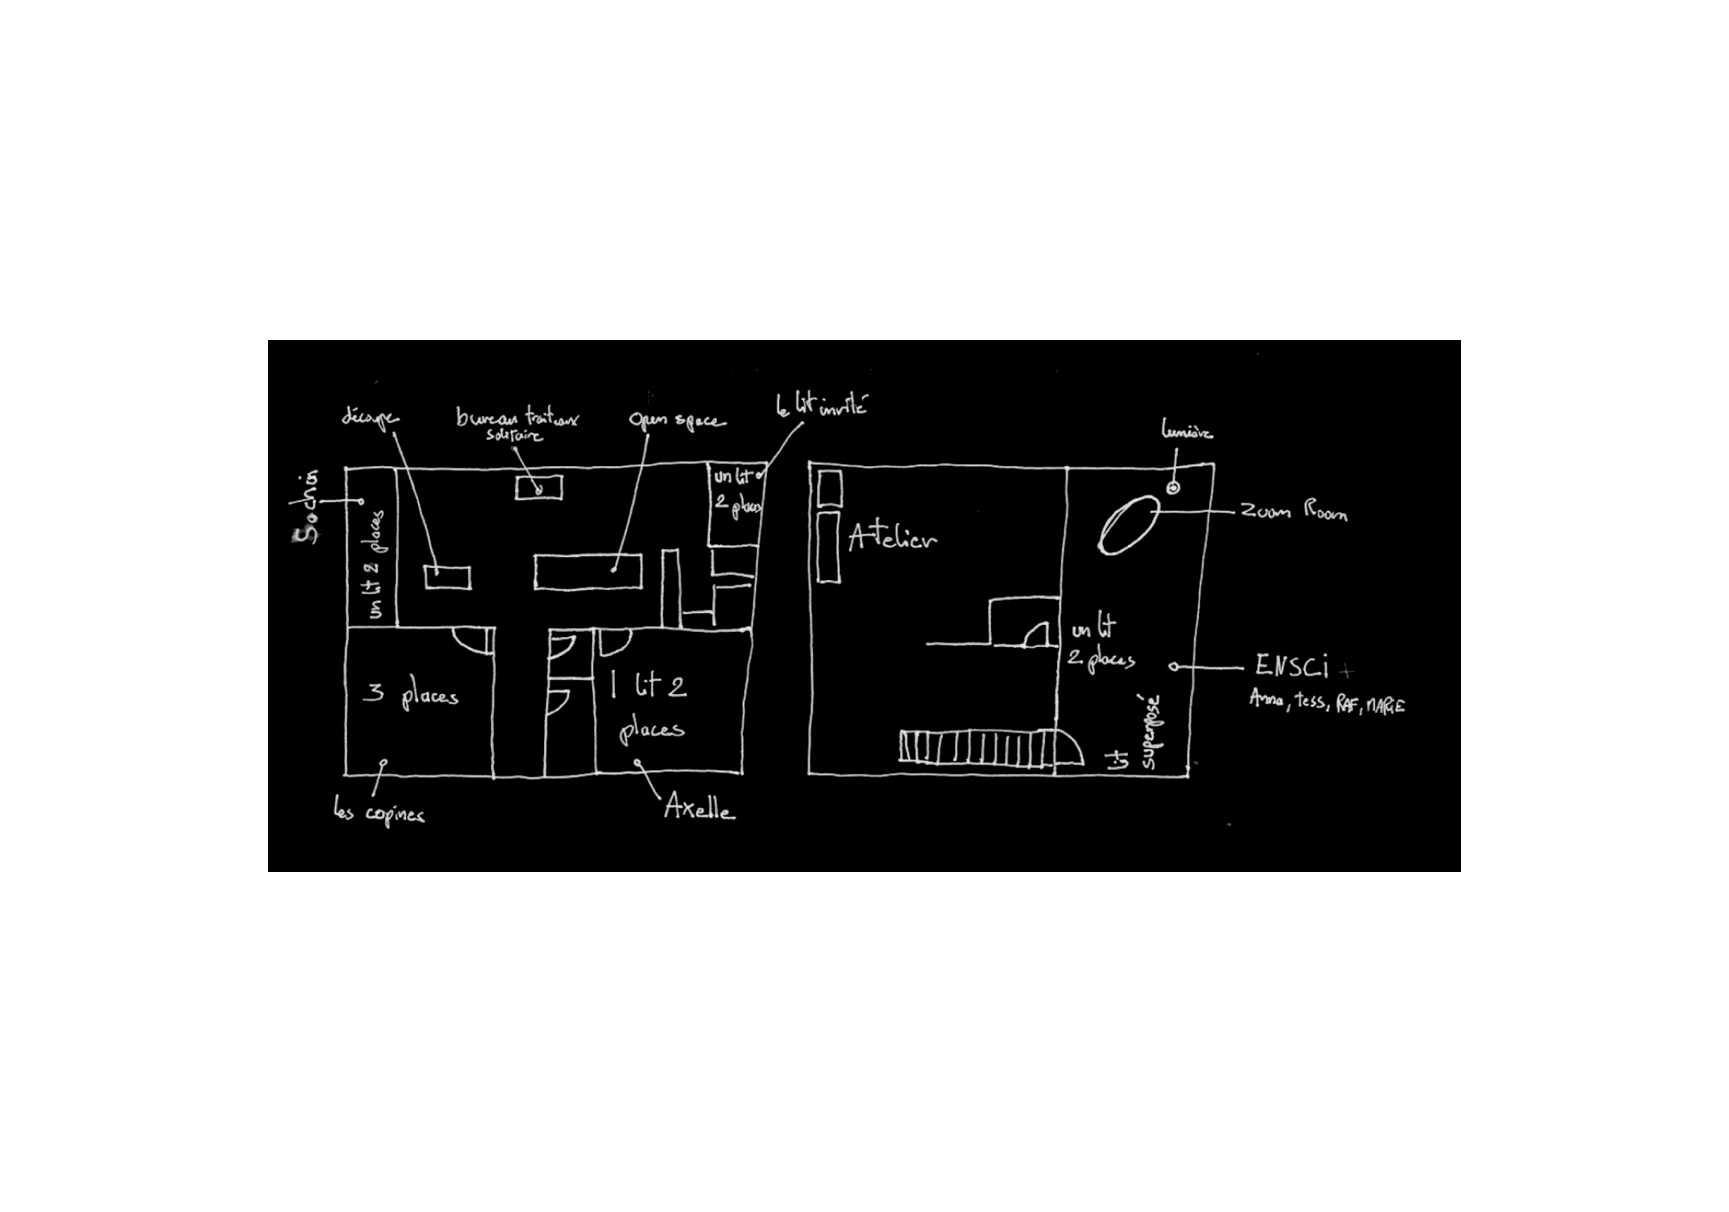 découpe
bureau
solitaire
open space
le lit invité
un lit
2 places
un lit 2 places
3 places
1 lit 2
places
les copines
Axelle
lumière
Zoom Room
Atelier
un lit
2 places
ENSCi +
Anna, tess, RAF, MARiE
lit
superposé